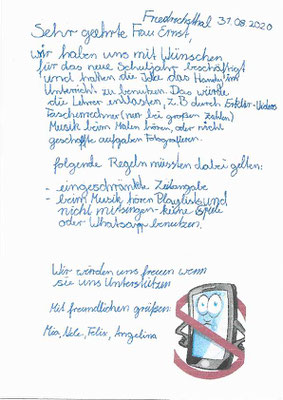 Friedrichsthal 31.08.2020
Sehr geehrte Frau Ernst,
wir haben uns mit Wünschen
für das neue Schuljahr beschäftigt
und hatten die Idee das Handy im
Unterricht zu benutzen. Das würde
die Lehrer entlasten, z.B durch Erklär-Videos
Taschenrechner (nur bei großen zahlen)
Musik beim Malen hören, oder nicht
geschaffte aufgaben Fotografieren.
folgende Regeln müssten dabei gelten:
- eingeschränkte Zeitangabe
- beim Musik hören Playlists und
nicht mitsingen - keine Spiele
oder Whatsapp benutzen.
Wir würden uns freuen wenn
sie uns Unterstützen
Mit freundlichen grüßen
Mia, Nele, Felix, Angelina